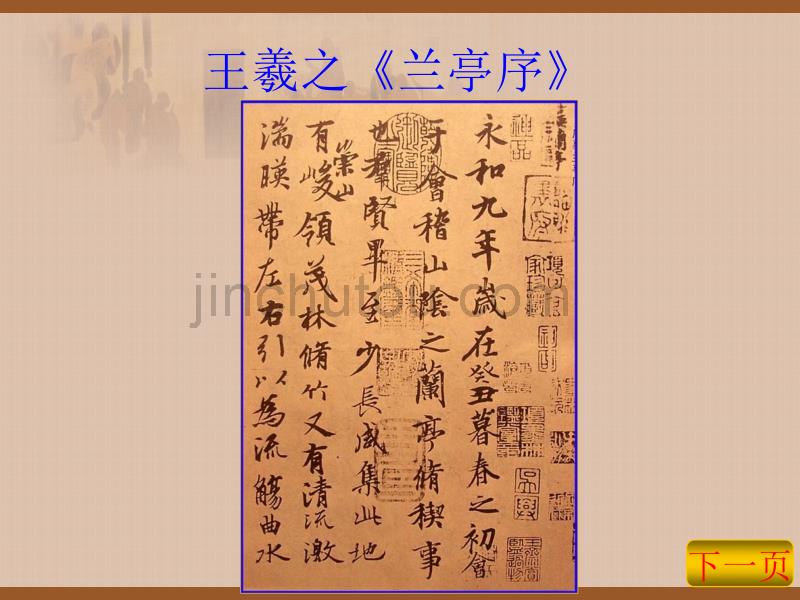 王羲之《兰亭序》
永和九年歳在癸丑暮春之初會
于會稽山陰之蘭亭脩稧事
也羣賢畢至少長咸集此地
有崇山峻領茂林脩竹又有清流激
湍暎帶左右引以為流觴曲水
jinchutou.com
下一页